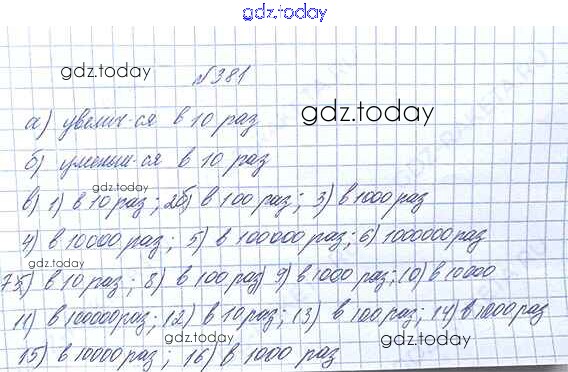 gdz.today
gdz.today №381
а) увелич-ся в 10 раз gdz.today
б) уменьш-ся в 10 раз
gdz.today
в) 1) в 10 раз; 2б) в 100 раз; 3) в 1000 раз
4) в 10000 раз; 5) в 100000 раз; 6) 1000000 раз
gdz.today
7) в 10 раз; 8) в 100 раз 9) в 1000 раз; 10) в 10000
11) в 100000 раз; 12) в 10 раз; 13) в 100 раз; 14) в 1000 раз
15) в 10000 раз; 16) в 1000 раз gdz.today